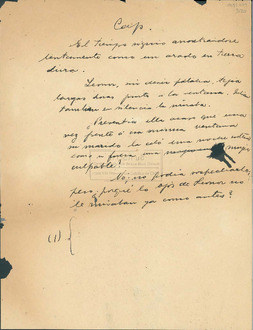 Cap.
El tiempo siguió arrastrándose
lentamente como un arado en tierra
dura.
Leonor, sin decir palabra, tejía
largas horas junto a la ventana. Ella
también en silencio la miraba.
Presentía ella acaso que una
vez frente a esa misma ventana
su marido la veló una noche
como si fuera una mujer
culpable?
No, no podía sospecharlo,
pero, porqué los ojos de Leonor no
le miraban ya como antes?
(1) {